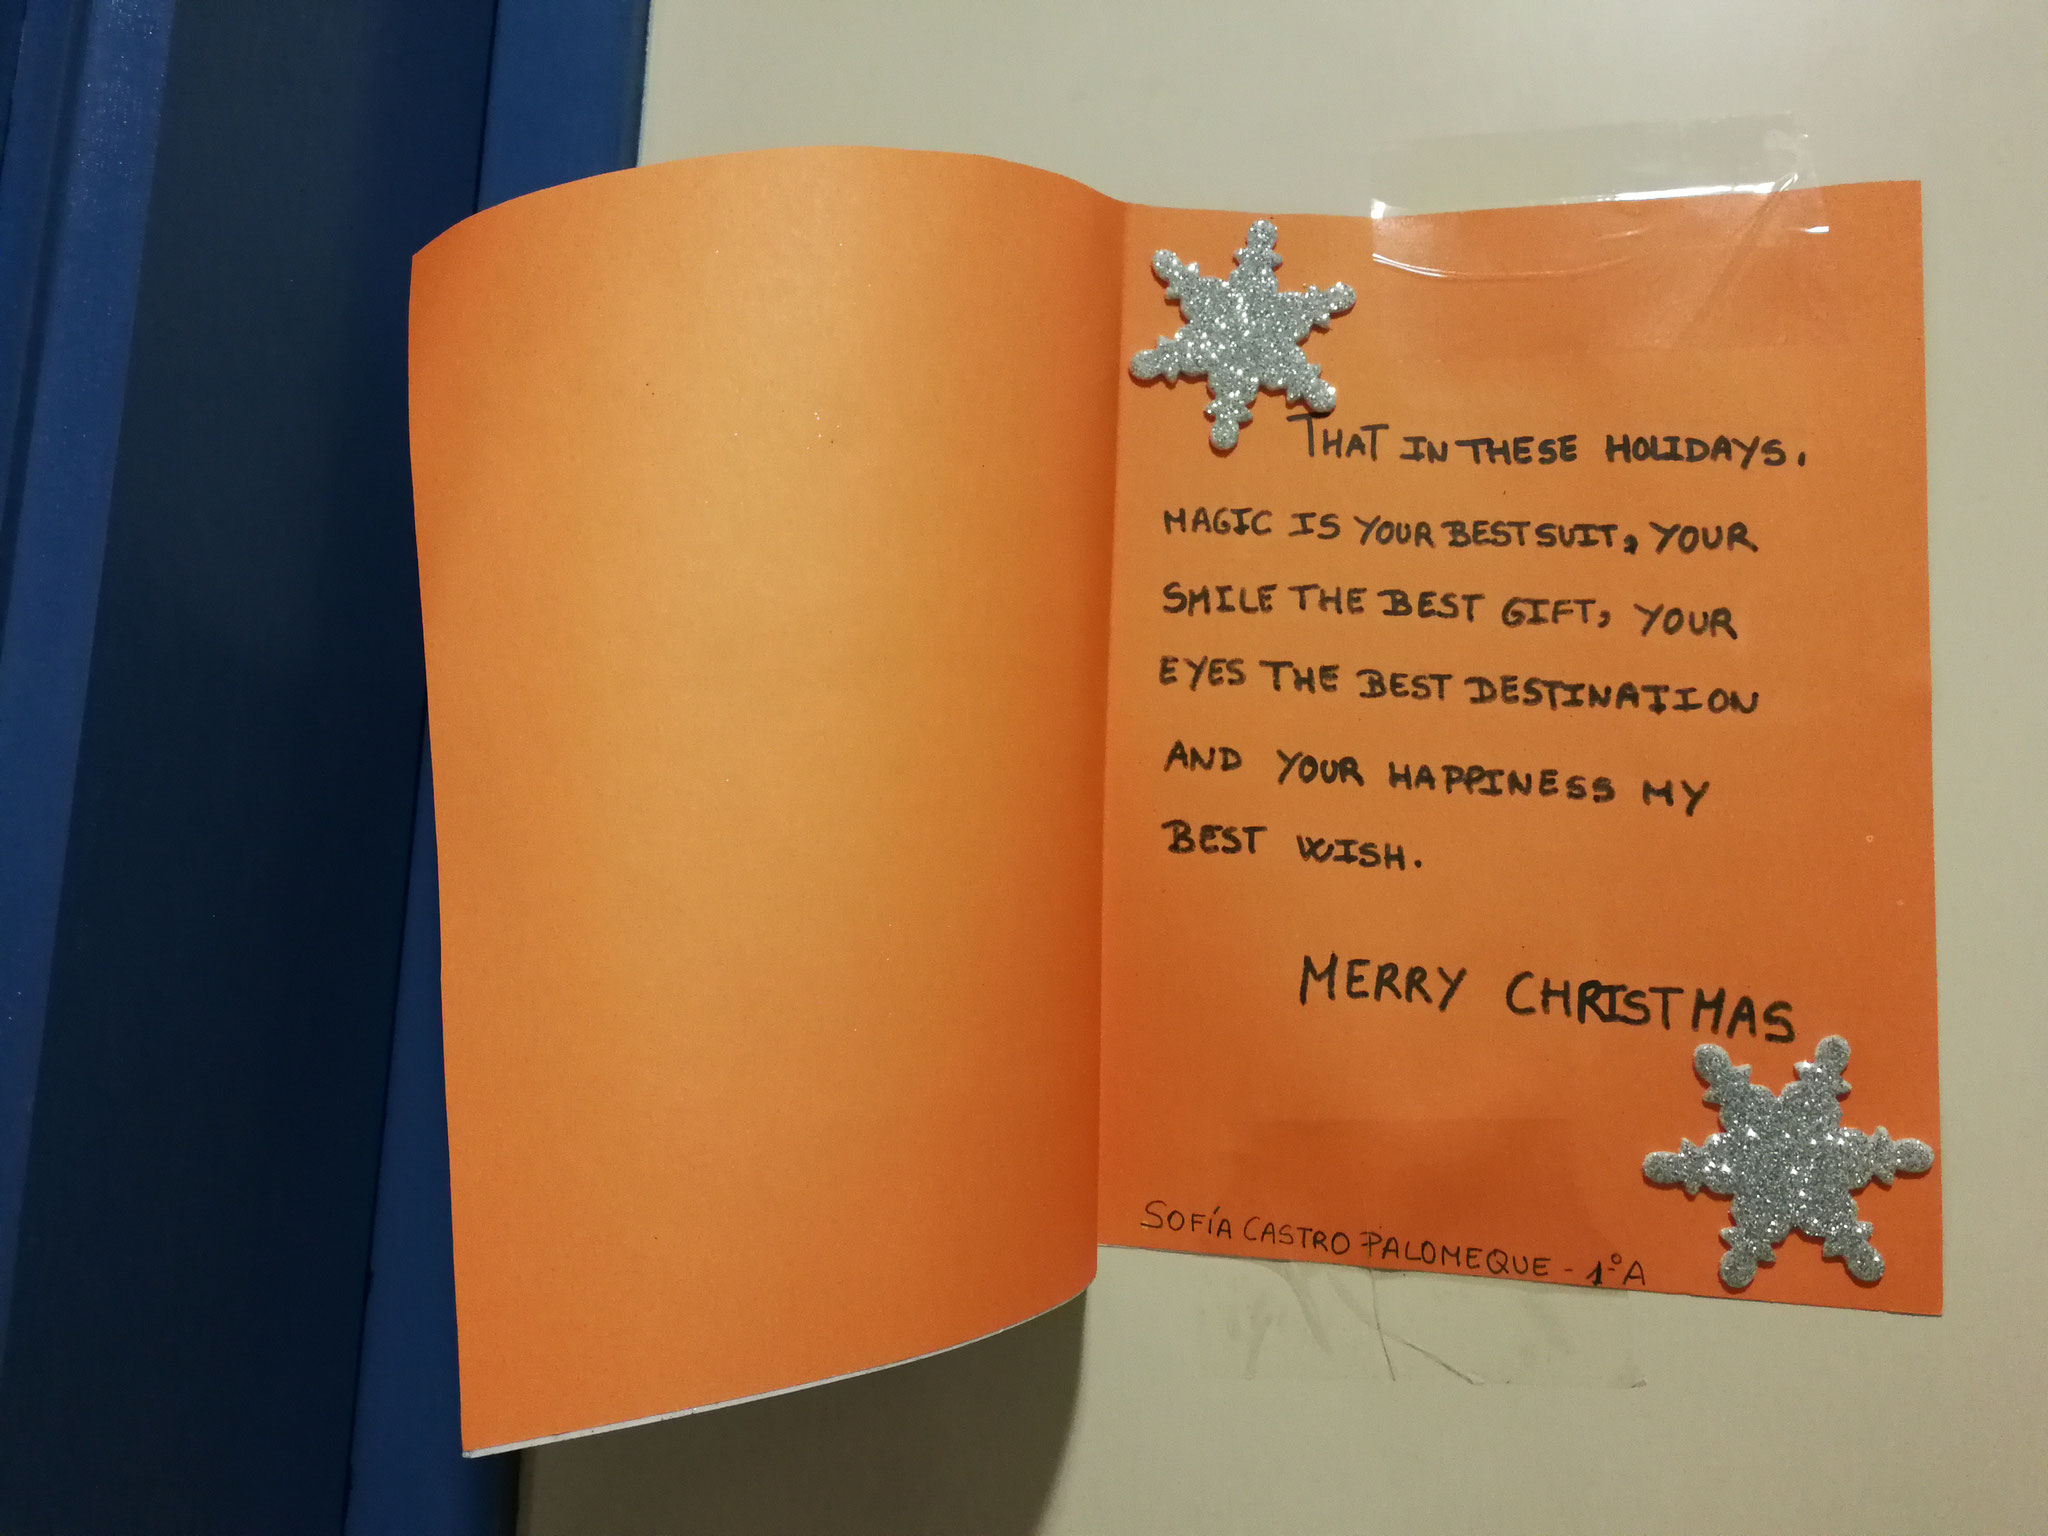 THAT IN THESE HOLIDAYS.
MAGIC IS YOUR BEST SUIT, YOUR
SMILE THE BEST GIFT, YOUR
EYES THE BEST DESTINATION
AND YOUR HAPPINESS MY
BEST WISH.
MERRY CHRISTMAS
SOFÍA CASTRO PALOMEQUE - 1ºA